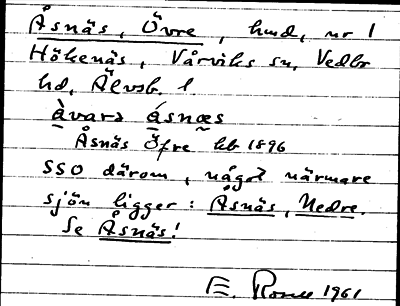 Åsnäs, Övre, hmd, nr 1
Hökenäs, Vårviks sn, Vedbo
hd, Älvsb. l.
àvarə ásnæs
Åsnäs Öfre hb 1896
SSO därom, något närmare
sjön ligger: Åsnäs, Nedre.
Se Åsnäs!
E. 1961